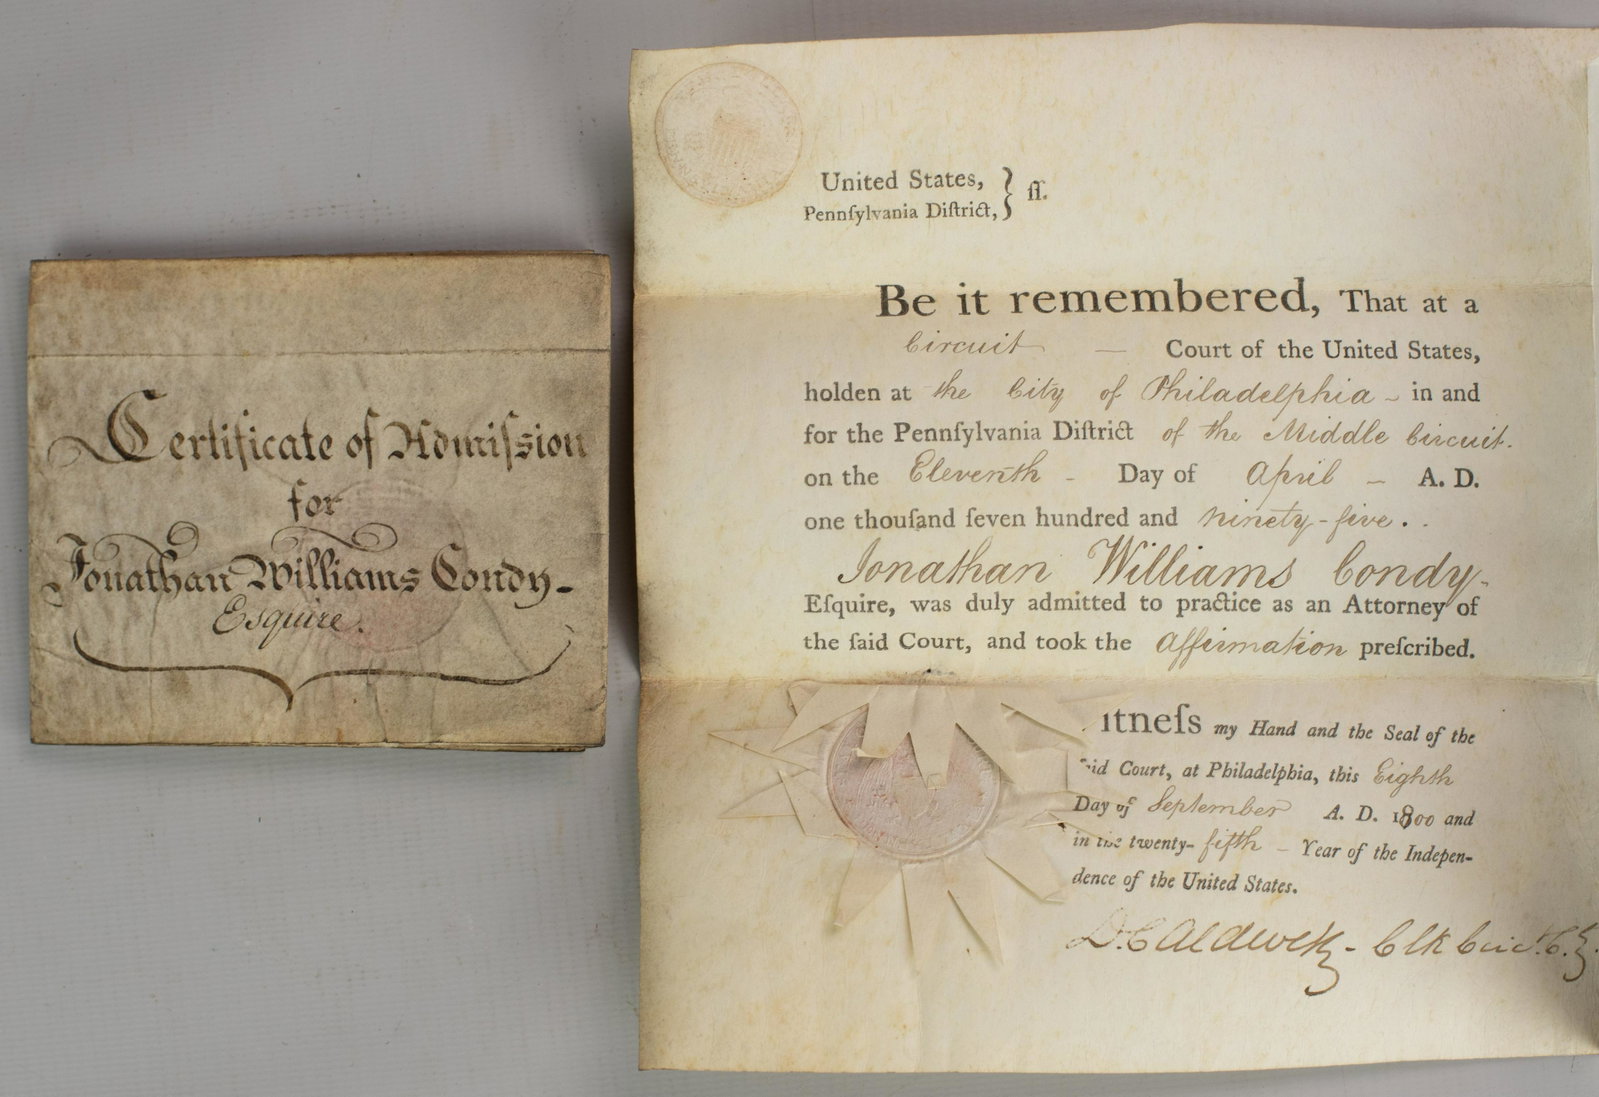 Certificate of Admiſsion
for
Jonathan Williams Condy-
Esquire.
United States,
Pennſylvania Diſtrict, } ſſ.
Be it remembered, That at a
Circuit — Court of the United States,
holden at the City of Philadelphia - in and
for the Pennſylvania Diſtrict of the Middle Circuit.
on the Eleventh - Day of April - A. D.
one thouſand ſeven hundred and ninety-five.
Jonathan Williams Condy-
Eſquire, was duly admitted to practice as an Attorney of
the ſaid Court, and took the Affirmation preſcribed.
itneſs my Hand and the Seal of the
id Court, at Philadelphia, this Eighth
Day of September A. D. 1800 and
in the twenty-fifth - Year of the Indepen-
dence of the United States.
D. Caldwell - Clk